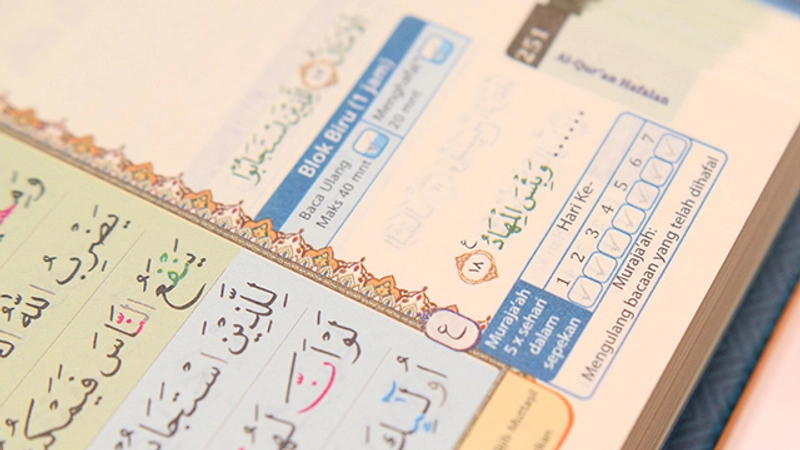 251
Al-Qur'an Hafalan
Blok Biru (1 jam)
Baca Ulang
Maks 40 mnt
Menghafal
20 mnt
لِلَّذِيْنَ اسْتَجَابُوْا
وَبِئْسَ الْمِهَادُ ......
١٨
ع
Muraja'ah
5 x sehari
dalam
sepekan
Hari Ke-
1 2 3 4 5 6 7
Muraja'ah:
Mengulang bacaan yang telah dihafal
ع
يَضْرِبُ اللّٰهُ
يَنْفَعُ النَّاسَ فَيَمْكُ
لِلَّذِيْنَ اسْتَجَابُ
لَوْ اَنَّ لَهُ
اُولٰۤىِٕكَ